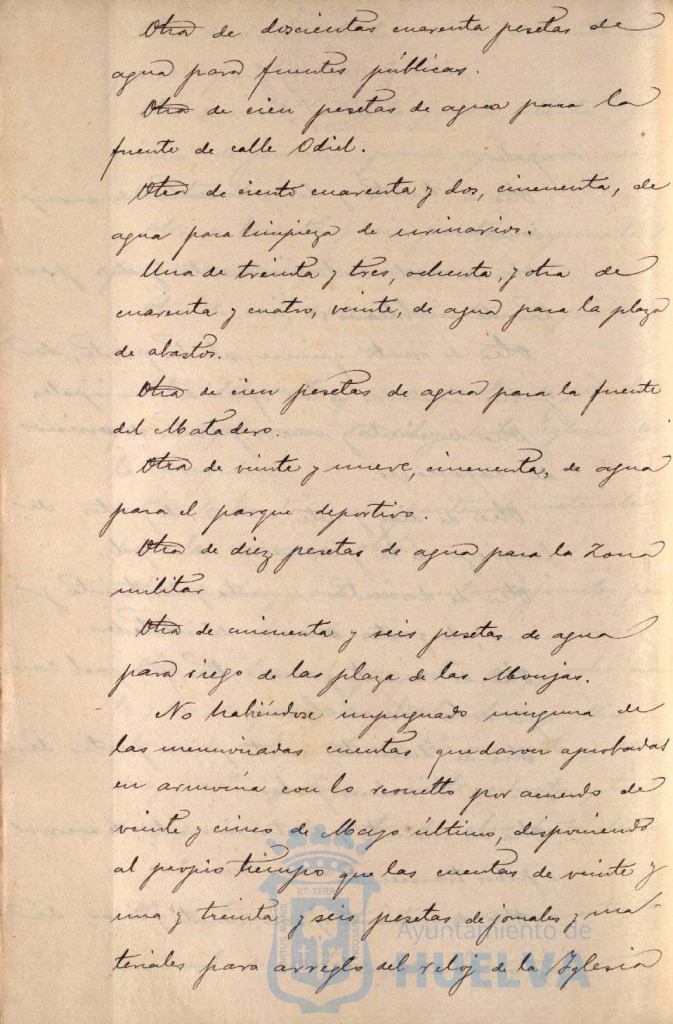 Otra de doscientas cuarenta pesetas de
agua para fuentes públicas.
Otra de cien pesetas de agua para la
fuente de calle Odiel.
Otra de ciento cuarenta y dos, cincuenta, de
agua para limpieza de urinarios.
Una de treinta y tres, ochenta, y otra de
cuarenta y cuatro, veinte, de agua para la plaza
de abastos.
Otra de cien pesetas de agua para la fuente
del Matadero.
Otra de veinte y nueve, cincuenta, de agua
para el parque deportivo.
Otra de diez pesetas de agua para la Zona
militar
Otra de cincuenta y seis pesetas de agua
para riego de las plaza de las Monjas.
No habiéndose impugnado ninguna de
las mencionadas cuentas quedaron aprobadas
en armonía con lo resuelto por acuerdo de
veinte y cinco de Mayo último, disponiendo
al propio tiempo que las cuentas de veinte y
una y treinta y seis pesetas de jornales y ma-
teriales para arreglo del reloj de la Iglesia
ET TERRÆ
Ayuntamiento de
HUELVA